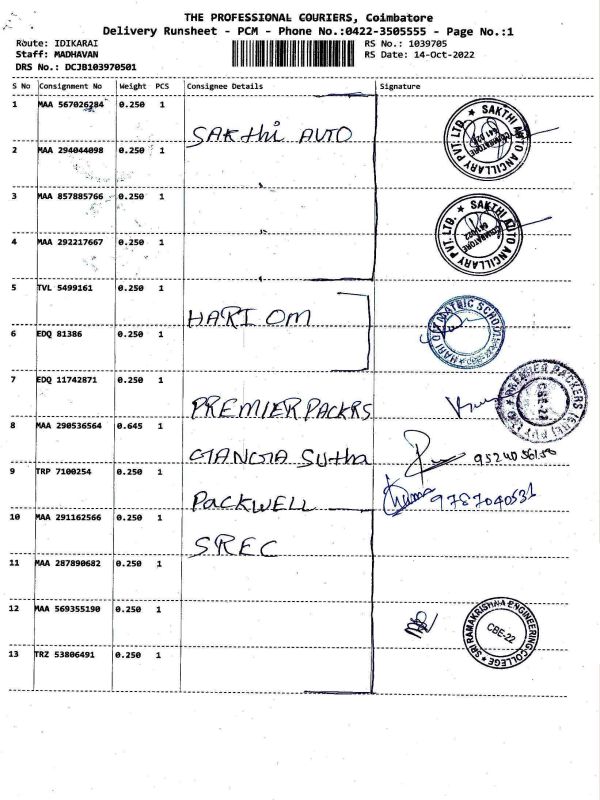 THE PROFESSIONAL COURIERS, Coimbatore
Delivery Runsheet - PCM - Phone No.:0422-3505555 - Page No.:1
Route: IDIKARAI
RS No.: 1039705
Staff: MADHAVAN
RS Date: 14-Oct-2022
DRS No.: DCJB103970501
S No Consignment No Weight PCS Consignee Details Signature
1 MAA 567026284 0.250 1
SAKthi AUTO
SAKTHI AUTO ANCILLARY PVT. LTD. COIMBATORE
2 MAA 294044098 0.250 1
3 MAA 857885766 0.250 1
SAKTHI AUTO ANCILLARY PVT. LTD. COIMBATORE
4 MAA 292217667 0.250 1
5 TVL 5499161 0.250 1
HARI OM
HARI OM MATRIC SCHOOL
6 EDQ 81386 0.250 1
7 EDQ 11742871 0.250 1
PREMIER PACKRS
PREMIER PACKERS (CBE) PVT LTD CBE-22
8 MAA 290536564 0.645 1
GANGA Sutha
9 TRP 7100254 0.250 1
PACKWELL
9787040531
10 MAA 291162566 0.250 1
SREC
11 MAA 287890682 0.250 1
12 MAA 569355190 0.250 1
SRI RAMAKRISHNA ENGINEERING COLLEGE CBE-22
13 TRZ 53806491 0.250 1